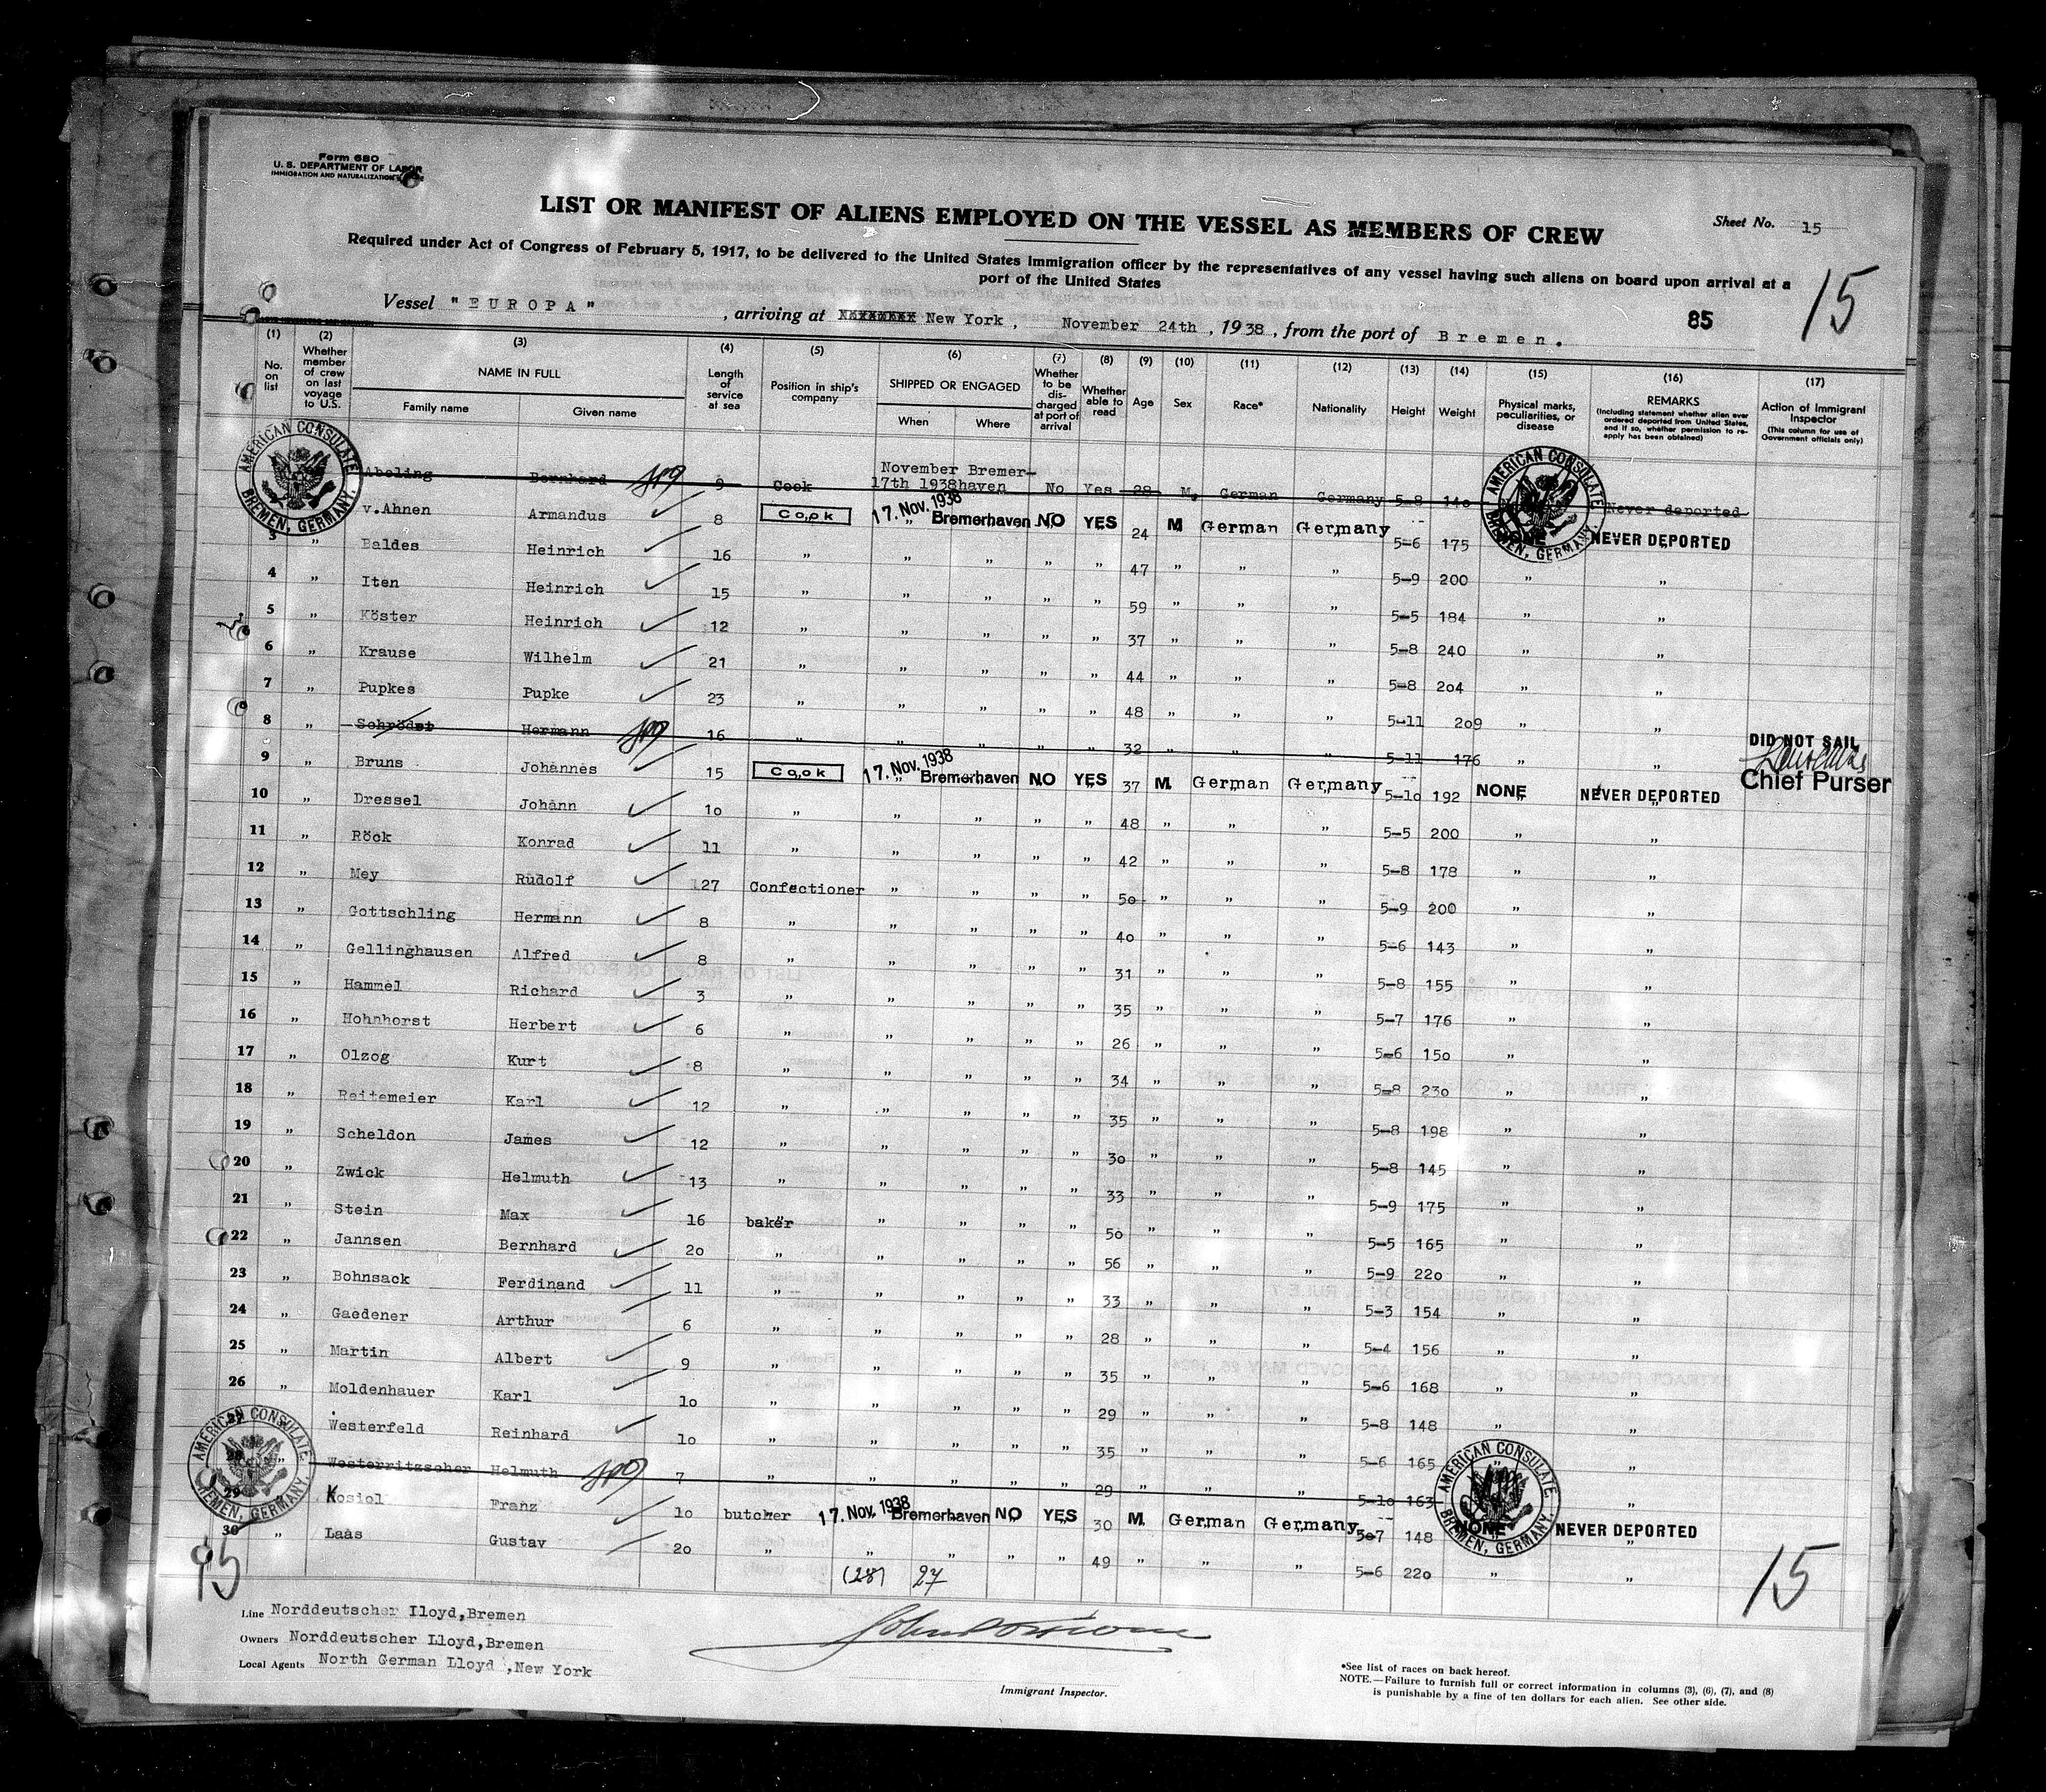 Form 680
U. S. DEPARTMENT OF LABOR
IMMIGRATION AND NATURALIZATION
LIST OR MANIFEST OF ALIENS EMPLOYED ON THE VESSEL AS MEMBERS OF CREW
Sheet No. 15
Required under Act of Congress of February 5, 1917, to be delivered to the United States immigration officer by the representatives of any vessel having such aliens on board upon arrival at a
port of the United States
15
Vessel "EUROPA", arriving at New York, November 24th, 1938, from the port of Bremen.
85
(1) (2) (3) (4) (5) (6) (7) (8) (9) (10) (11) (12) (13) (14) (15) (16) (17)
No. on list
Whether member of crew on last voyage to U.S.
NAME IN FULL
Family name
Given name
Length of service at sea
Position in ship's company
SHIPPED OR ENGAGED
When
Where
Whether to be discharged at port of arrival
Whether able to read
Age
Sex
Race*
Nationality
Height
Weight
Physical marks, peculiarities, or disease
REMARKS
(Including statement whether alien ever ordered deported from United States, and if so, whether permission to reapply has been obtained)
Action of Immigrant Inspector
(This column for use of Government officials only)
AMERICAN CONSULATE BREMEN, GERMANY.
AMERICAN CONSULATE BREMEN, GERMANY.
Abeling Bernhard 9 Cook November 17th 1938 Bremerhaven No Yes 28 M. German Germany 5-8 140 Never deported
v.Ahnen Armandus 8 Cook 17. Nov. 1938 Bremerhaven NO YES 24 M German Germany 5-6 175 NONE NEVER DEPORTED
3 " Baldes Heinrich 16 " " " " " 47 " " " 5-9 200 " "
4 " Iten Heinrich 15 " " " " " 59 " " " 5-5 184 " "
5 " Köster Heinrich 12 " " " " " 37 " " " 5-8 240 " "
6 " Krause Wilhelm 21 " " " " " 44 " " " 5-8 204 " "
7 " Pupkes Pupke 23 " " " " " 48 " " " 5-11 209 " "
8 " Schröder Hermann 16 " " " " " 32 " " " 5-11 176 " " DID NOT SAIL
Chief Purser
9 " Bruns Johannes 15 Cook 17. Nov. 1938 Bremerhaven NO YES 37 M German Germany 5-10 192 NONE NEVER DEPORTED
10 " Dressel Johann 10 " " " " " 48 " " " 5-5 200 " "
11 " Röck Konrad 11 " " " " " 42 " " " 5-8 178 " "
12 " Mey Rudolf 27 Confectioner " " " " 50 " " " 5-9 200 " "
13 " Gottschling Hermann 8 " " " " " 40 " " " 5-6 143 " "
14 " Gellinghausen Alfred 8 " " " " " 31 " " " 5-8 155 " "
15 " Hammel Richard 3 " " " " " 35 " " " 5-7 176 " "
16 " Hohnhorst Herbert 6 " " " " " 26 " " " 5-6 150 " "
17 " Olzog Kurt 8 " " " " " 34 " " " 5-8 230 " "
18 " Reitemeier Karl 12 " " " " " 35 " " " 5-8 198 " "
19 " Scheldon James 12 " " " " " 30 " " " 5-8 145 " "
20 " Zwick Helmuth 13 " " " " " 33 " " " 5-9 175 " "
21 " Stein Max 16 baker " " " " 50 " " " 5-5 165 " "
22 " Jannsen Bernhard 20 " " " " " 56 " " " 5-9 220 " "
23 " Bohnsack Ferdinand 11 " " " " " 33 " " " 5-3 154 " "
24 " Gaedener Arthur 6 " " " " " 28 " " " 5-4 156 " "
25 " Martin Albert 9 " " " " " 35 " " " 5-6 168 " "
26 " Moldenhauer Karl 10 " " " " " 29 " " " 5-8 148 " "
27 Westerfeld Reinhard 10 " " " " " 35 " " " 5-6 165 " "
28 " Westerritzscher Helmuth 7 " " " " " 29 " " " 5-10 163 "
29 Kosiol Franz 10 butcher 17. Nov. 1938 Bremerhaven NO YES 30 M. German Germany 5-7 148 NONE NEVER DEPORTED
30 " Laas Gustav 20 " " " " " 49 " " " 5-6 220 " "
AMERICAN CONSULATE BREMEN, GERMANY.
AMERICAN CONSULATE BREMEN, GERMANY.
(28) 27
15
Line Norddeutscher Lloyd,Bremen
Owners Norddeutscher Lloyd,Bremen
Local Agents North German Lloyd ,New York
Immigrant Inspector.
*See list of races on back hereof.
NOTE.—Failure to furnish full or correct information in columns (3), (6), (7), and (8)
is punishable by a fine of ten dollars for each alien. See other side.